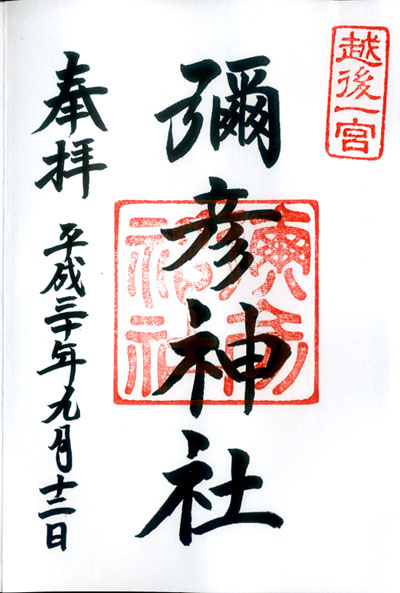 越後一宮
彌彦神社
彌彦
神社
奉拝
平成三十年九月十二日